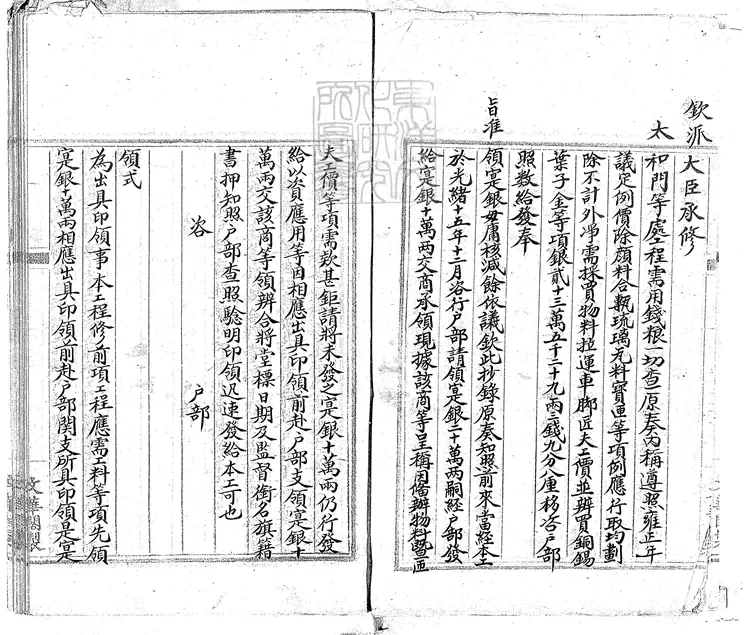 欽派大臣承修
太
和門等處工程需用錢糧一切查原奏內稱遵照雍正年
議定例價除顏料合甎琉璃瓦料寶匣等項例應行取均劃
除不計外淨需採買物料拉運車脚匠夫工價並辦買銅錫
葉子金等項銀貳十三萬五千二十九兩三錢九分八厘移咨戶部
照數給發奉
旨准
領寔銀毋庸核減餘依議欽此抄錄原奏知照前來當經本工
於光緒十五年十二月咨行戶部請領寔銀二十萬兩嗣經戶部發
給寔銀十萬兩交商承領現據該商等呈稱因備辦物料暨匠
夫工價等項需欵甚鉅請將未發之寔銀十萬兩仍行發
給以資應用等因相應出具印領前赴戶部支領寔銀十
萬兩交該商等領辦合將堂標日期及監督銜名旗籍
書押知照戶部查照驗明印領迅速發給本工可也
咨
戶部
領式
為出具印領事本工程修前項工程應需工料等項先領
寔銀十萬兩相應出具印領前赴戶部関支所具印領是寔
文華閣製